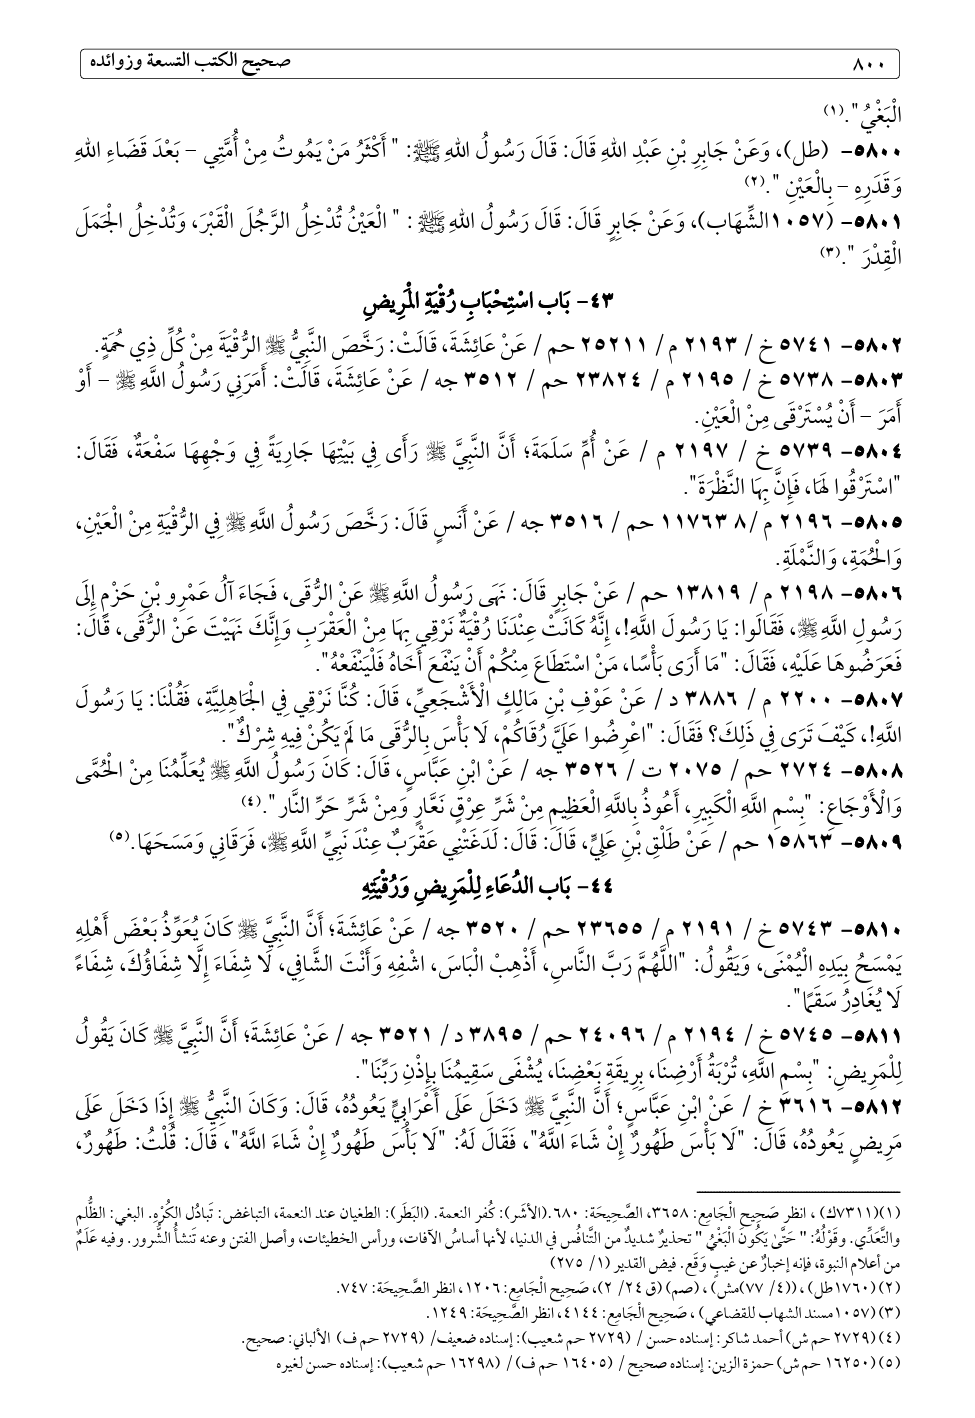 ٨٠٠ صحيح الكتب التسعة وزوائده
الْبَغْيُ". (١)
٥٨٠٠- (طل)، وَعَنْ جَابِرِ بْنِ عَبْدِ اللهِ قَالَ: قَالَ رَسُولُ اللهِ ﷺ: " أَكْثَرُ مَنْ يَمُوتُ مِنْ أُمَّتِي – بَعْدَ قَضَاءِ اللهِ
وَقَدَرِهِ – بِالْعَيْنِ ". (٢)
٥٨٠١- (١٠٥٧الشِّهَاب)، وَعَنْ جَابِرٍ قَالَ: قَالَ رَسُولُ اللهِ ﷺ : " الْعَيْنُ تُدْخِلُ الرَّجُلَ الْقَبْرَ، وَتُدْخِلُ الْجَمَلَ
الْقِدْرَ ". (٣)
٤٣- بَاب اسْتِحْبَابِ رُقْيَةِ الْمَرِيضِ
٥٨٠٢- ٥٧٤١ خ / ٢١٩٣ م / ٢٥٢١١ حم / عَنْ عَائِشَةَ، قَالَتْ: رَخَّصَ النَّبِيُّ ﷺ الرُّقْيَةَ مِنْ كُلِّ ذِي حُمَةٍ.
٥٨٠٣- ٥٧٣٨ خ / ٢١٩٥ م / ٢٣٨٢٤ حم / ٣٥١٢ جه / عَنْ عَائِشَةَ، قَالَتْ: أَمَرَنِي رَسُولُ اللَّهِ ﷺ – أَوْ
أَمَرَ – أَنْ يُسْتَرْقَى مِنْ الْعَيْنِ.
٥٨٠٤- ٥٧٣٩ خ / ٢١٩٧ م / عَنْ أُمِّ سَلَمَةَ؛ أَنَّ النَّبِيَّ ﷺ رَأَى فِي بَيْتِهَا جَارِيَةً فِي وَجْهِهَا سَفْعَةٌ، فَقَالَ:
"اسْتَرْقُوا لَهَا، فَإِنَّ بِهَا النَّظْرَةَ".
٥٨٠٥- ٢١٩٦ م /٨ ١١٧٦٣ حم / ٣٥١٦ جه / عَنْ أَنَسٍ قَالَ: رَخَّصَ رَسُولُ اللَّهِ ﷺ فِي الرُّقْيَةِ مِنْ الْعَيْنِ،
وَالْحُمَةِ، وَالنَّمْلَةِ.
٥٨٠٦- ٢١٩٨ م / ١٣٨١٩ حم / عَنْ جَابِرٍ قَالَ: نَهَى رَسُولُ اللَّهِ ﷺ عَنْ الرُّقَى، فَجَاءَ آلُ عَمْرِو بْنِ حَزْمٍ إِلَى
رَسُولِ اللَّهِ ﷺ، فَقَالُوا: يَا رَسُولَ اللَّهِ!، إِنَّهُ كَانَتْ عِنْدَنَا رُقْيَةٌ نَرْقِي بِهَا مِنْ الْعَقْرَبِ وَإِنَّكَ نَهَيْتَ عَنْ الرُّقَى، قَالَ:
فَعَرَضُوهَا عَلَيْهِ، فَقَالَ: "مَا أَرَى بَأْسًا، مَنْ اسْتَطَاعَ مِنْكُمْ أَنْ يَنْفَعَ أَخَاهُ فَلْيَنْفَعْهُ".
٥٨٠٧- ٢٢٠٠ م / ٣٨٨٦ د / عَنْ عَوْفِ بْنِ مَالِكٍ الْأَشْجَعِيِّ، قَالَ: كُنَّا نَرْقِي فِي الْجَاهِلِيَّةِ، فَقُلْنَا: يَا رَسُولَ
اللَّهِ!، كَيْفَ تَرَى فِي ذَلِكَ؟ فَقَالَ: "اعْرِضُوا عَلَيَّ رُقَاكُمْ، لَا بَأْسَ بِالرُّقَى مَا لَمْ يَكُنْ فِيهِ شِرْكٌ".
٥٨٠٨- ٢٧٢٤ حم / ٢٠٧٥ ت / ٣٥٢٦ جه / عَنْ ابْنِ عَبَّاسٍ، قَالَ: كَانَ رَسُولُ اللَّهِ ﷺ يُعَلِّمُنَا مِنْ الْحُمَّى
وَالْأَوْجَاعِ: "بِسْمِ اللَّهِ الْكَبِيرِ، أَعُوذُ بِاللَّهِ الْعَظِيمِ مِنْ شَرِّ عِرْقٍ نَعَّارٍ وَمِنْ شَرِّ حَرِّ النَّارِ". (٤)
٥٨٠٩- ١٥٨٦٣ حم / عَنْ طَلْقِ بْنِ عَلِيٍّ، قَالَ: قَالَ: لَدَغَتْنِي عَقْرَبٌ عِنْدَ نَبِيِّ اللَّهِ ﷺ، فَرَقَانِي وَمَسَحَهَا. (٥)
٤٤- بَاب الدُّعَاءِ لِلْمَرِيضِ وَرُقْيَتِهِ
٥٨١٠- ٥٧٤٣ خ / ٢١٩١ م / ٢٣٦٥٥ حم / ٣٥٢٠ جه / عَنْ عَائِشَةَ؛ أَنَّ النَّبِيَّ ﷺ كَانَ يُعَوِّذُ بَعْضَ أَهْلِهِ
يَمْسَحُ بِيَدِهِ الْيُمْنَى، وَيَقُولُ: "اللَّهُمَّ رَبَّ النَّاسِ، أَذْهِبْ الْبَاسَ، اشْفِهِ وَأَنْتَ الشَّافِي، لَا شِفَاءَ إِلَّا شِفَاؤُكَ، شِفَاءً
لَا يُغَادِرُ سَقَمًا".
٥٨١١- ٥٧٤٥ خ / ٢١٩٤ م / ٢٤٠٩٦ حم / ٣٨٩٥ د / ٣٥٢١ جه / عَنْ عَائِشَةَ؛ أَنَّ النَّبِيَّ ﷺ كَانَ يَقُولُ
لِلْمَرِيضِ: "بِسْمِ اللَّهِ، تُرْبَةُ أَرْضِنَا، بِرِيقَةِ بَعْضِنَا، يُشْفَى سَقِيمُنَا بِإِذْنِ رَبِّنَا".
٥٨١٢- ٣٦١٦ خ / عَنْ ابْنِ عَبَّاسٍ؛ أَنَّ النَّبِيَّ ﷺ دَخَلَ عَلَى أَعْرَابِيٍّ يَعُودُهُ، قَالَ: وَكَانَ النَّبِيُّ ﷺ إِذَا دَخَلَ عَلَى
مَرِيضٍ يَعُودُهُ، قَالَ: "لَا بَأْسَ طَهُورٌ إِنْ شَاءَ اللَّهُ"، فَقَالَ لَهُ: "لَا بَأْسَ طَهُورٌ إِنْ شَاءَ اللَّهُ"، قَالَ: قُلْتُ: طَهُورٌ،
(١)(٧٣١١ك) ، انظر صَحِيح الْجَامِع: ٣٦٥٨، الصَّحِيحَة: ٦٨٠.(الأشَر): كُفر النعمة. (البَطَر): الطغيان عند النعمة، التباغض: تَبَادُل الكُرْهِ. البغي: الظُّلم
والتَّعَدِّي. وقَوْلُهُ: " حَتَّى يَكُونَ الْبَغْيُ " تحذيرٌ شديدٌ من التَّنافُس في الدنيا، لأنها أساسُ الآفات، ورأس الخطيئات، وأصل الفتن وعنه تَنشأُ الشُّرور. وفيه عَلَمٌ
من أعلام النبوة، فإنه إخبارٌ عن غيبٍ وَقَع. فيض القدير (١/ ٢٧٥)
(٢) (١٧٦٠طل) ، ((٤/ ٧٧)مش) ، (صم) (ق ٢٤/ ٢)، صَحِيح الْجَامِع: ١٢٠٦، انظر الصَّحِيحَة: ٧٤٧.
(٣) (١٠٥٧مسند الشهاب للقضاعي) ، صَحِيح الْجَامِع: ٤١٤٤، انظر الصَّحِيحَة: ١٢٤٩.
(٤) (٢٧٢٩ حم ش) أحمد شاكر: إسناده حسن / (٢٧٢٩ حم شعيب): إسناده ضعيف/ (٢٧٢٩ حم ف) الألباني: صحيح.
(٥) (١٦٢٥٠ حم ش) حمزة الزين: إسناده صحيح / (١٦٤٠٥ حم ف)/ (١٦٢٩٨ حم شعيب): إسناده حسن لغيره